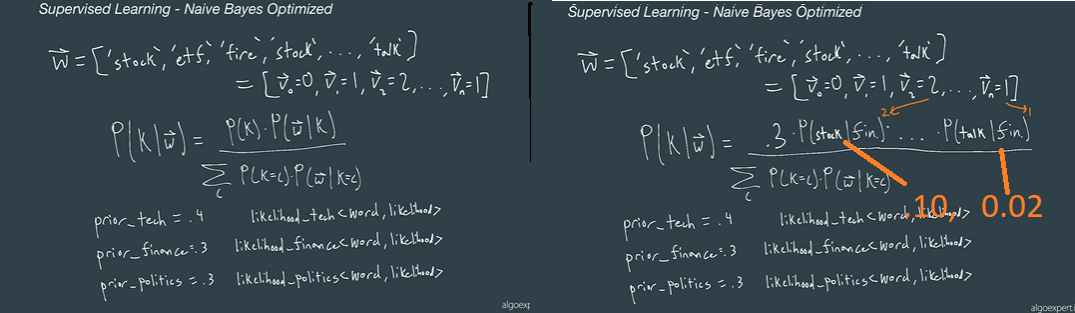 Supervised Learning - Naive Bayes Optimized
w⃗ = ['stock', 'etf', 'fire', 'stock', ..., 'talk']
= [v⃗₀=0, v⃗₁=1, v⃗₂=2, ..., v⃗ₙ=1]
P(K|w⃗) = P(K)·P(w⃗|K)
∑c P(K=c)·P(w⃗|K=c)
prior_tech = .4 likelihood_tech<word, likelihood>
prior_finance=.3 likelihood_finance<word, likelihood>
prior_politics = .3 likelihood_politics<word, likelihood>
algoexp
Supervised Learning - Naive Bayes Optimized
w⃗ = ['stock', 'etf', 'fire', 'stock', ..., 'talk']
= [v⃗₀=0, v⃗₁=1, v⃗₂=2, ..., v⃗ₙ=1]
2 1
P(K|w⃗) = .3 · P(stock|fin.) · ... · P(talk|fin.)
∑c P(K=c)·P(w⃗|K=c)
.10, 0.02
prior_tech = .4 likelihood_tech<word, likelihood>
prior_finance=.3 likelihood_finance<word, likelihood>
prior_politics = .3 likelihood_politics<word, likelihood>
algoexpert.i